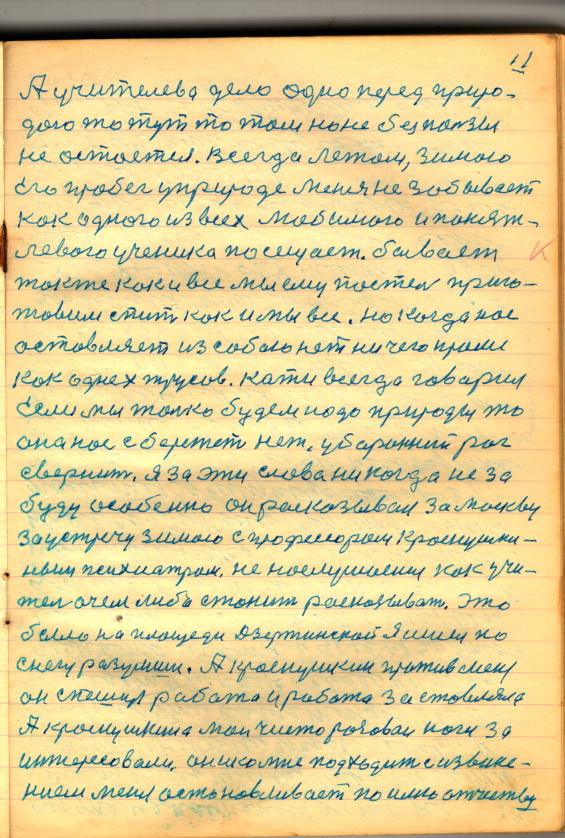 11
А учителева дело одно перед приро-
дого то тут то там но не без пользы
не остоется. всегда летом, зимого
Его пробег у природе меня не забывает
как одного из всех любимого и понят-
левого ученика посещает. бывает К
также как и все мы ему постел приго-
товим спит как и мы все. но когда нас
оставляет из собою нет ничего проми
как однех трусов. кати всегда говарил
Если мы толко будем надо природы то
она нас сбережет нет, убаронний рог
свернит. Я за эти слова никогда не за
буду особенно он расказывал за москву
за устречу зимого с професором краснушки-
ным психиатром. не наслушаеш как учи-
тел о чем либо станит расказыват. Это
было на площеди Дзержинской Я ишел по
снегу разумши. А краснушкин против меня
он спешил работа и работа заставляла
А краснушкина маи чисто розоваи ноги за
интересовали, он ико мне подходит с извине-
нием меня остановливает по имю отчеству